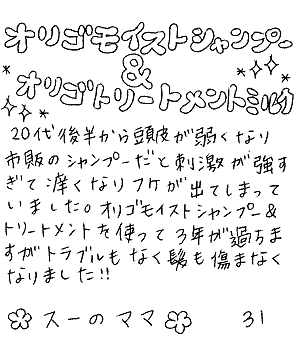 オリゴモイストシャンプー
&
オリゴトリートメントミルク
20代後半から頭皮が弱くなり
市販のシャンプーだと刺激が強す
ぎて痒くなりフケが出てしまって
いました。オリゴモイストシャンプー&
トリートメントを使って3年が過ちま
すがトラブルもなく髪も傷まなく
なりました!!
スーのママ 31